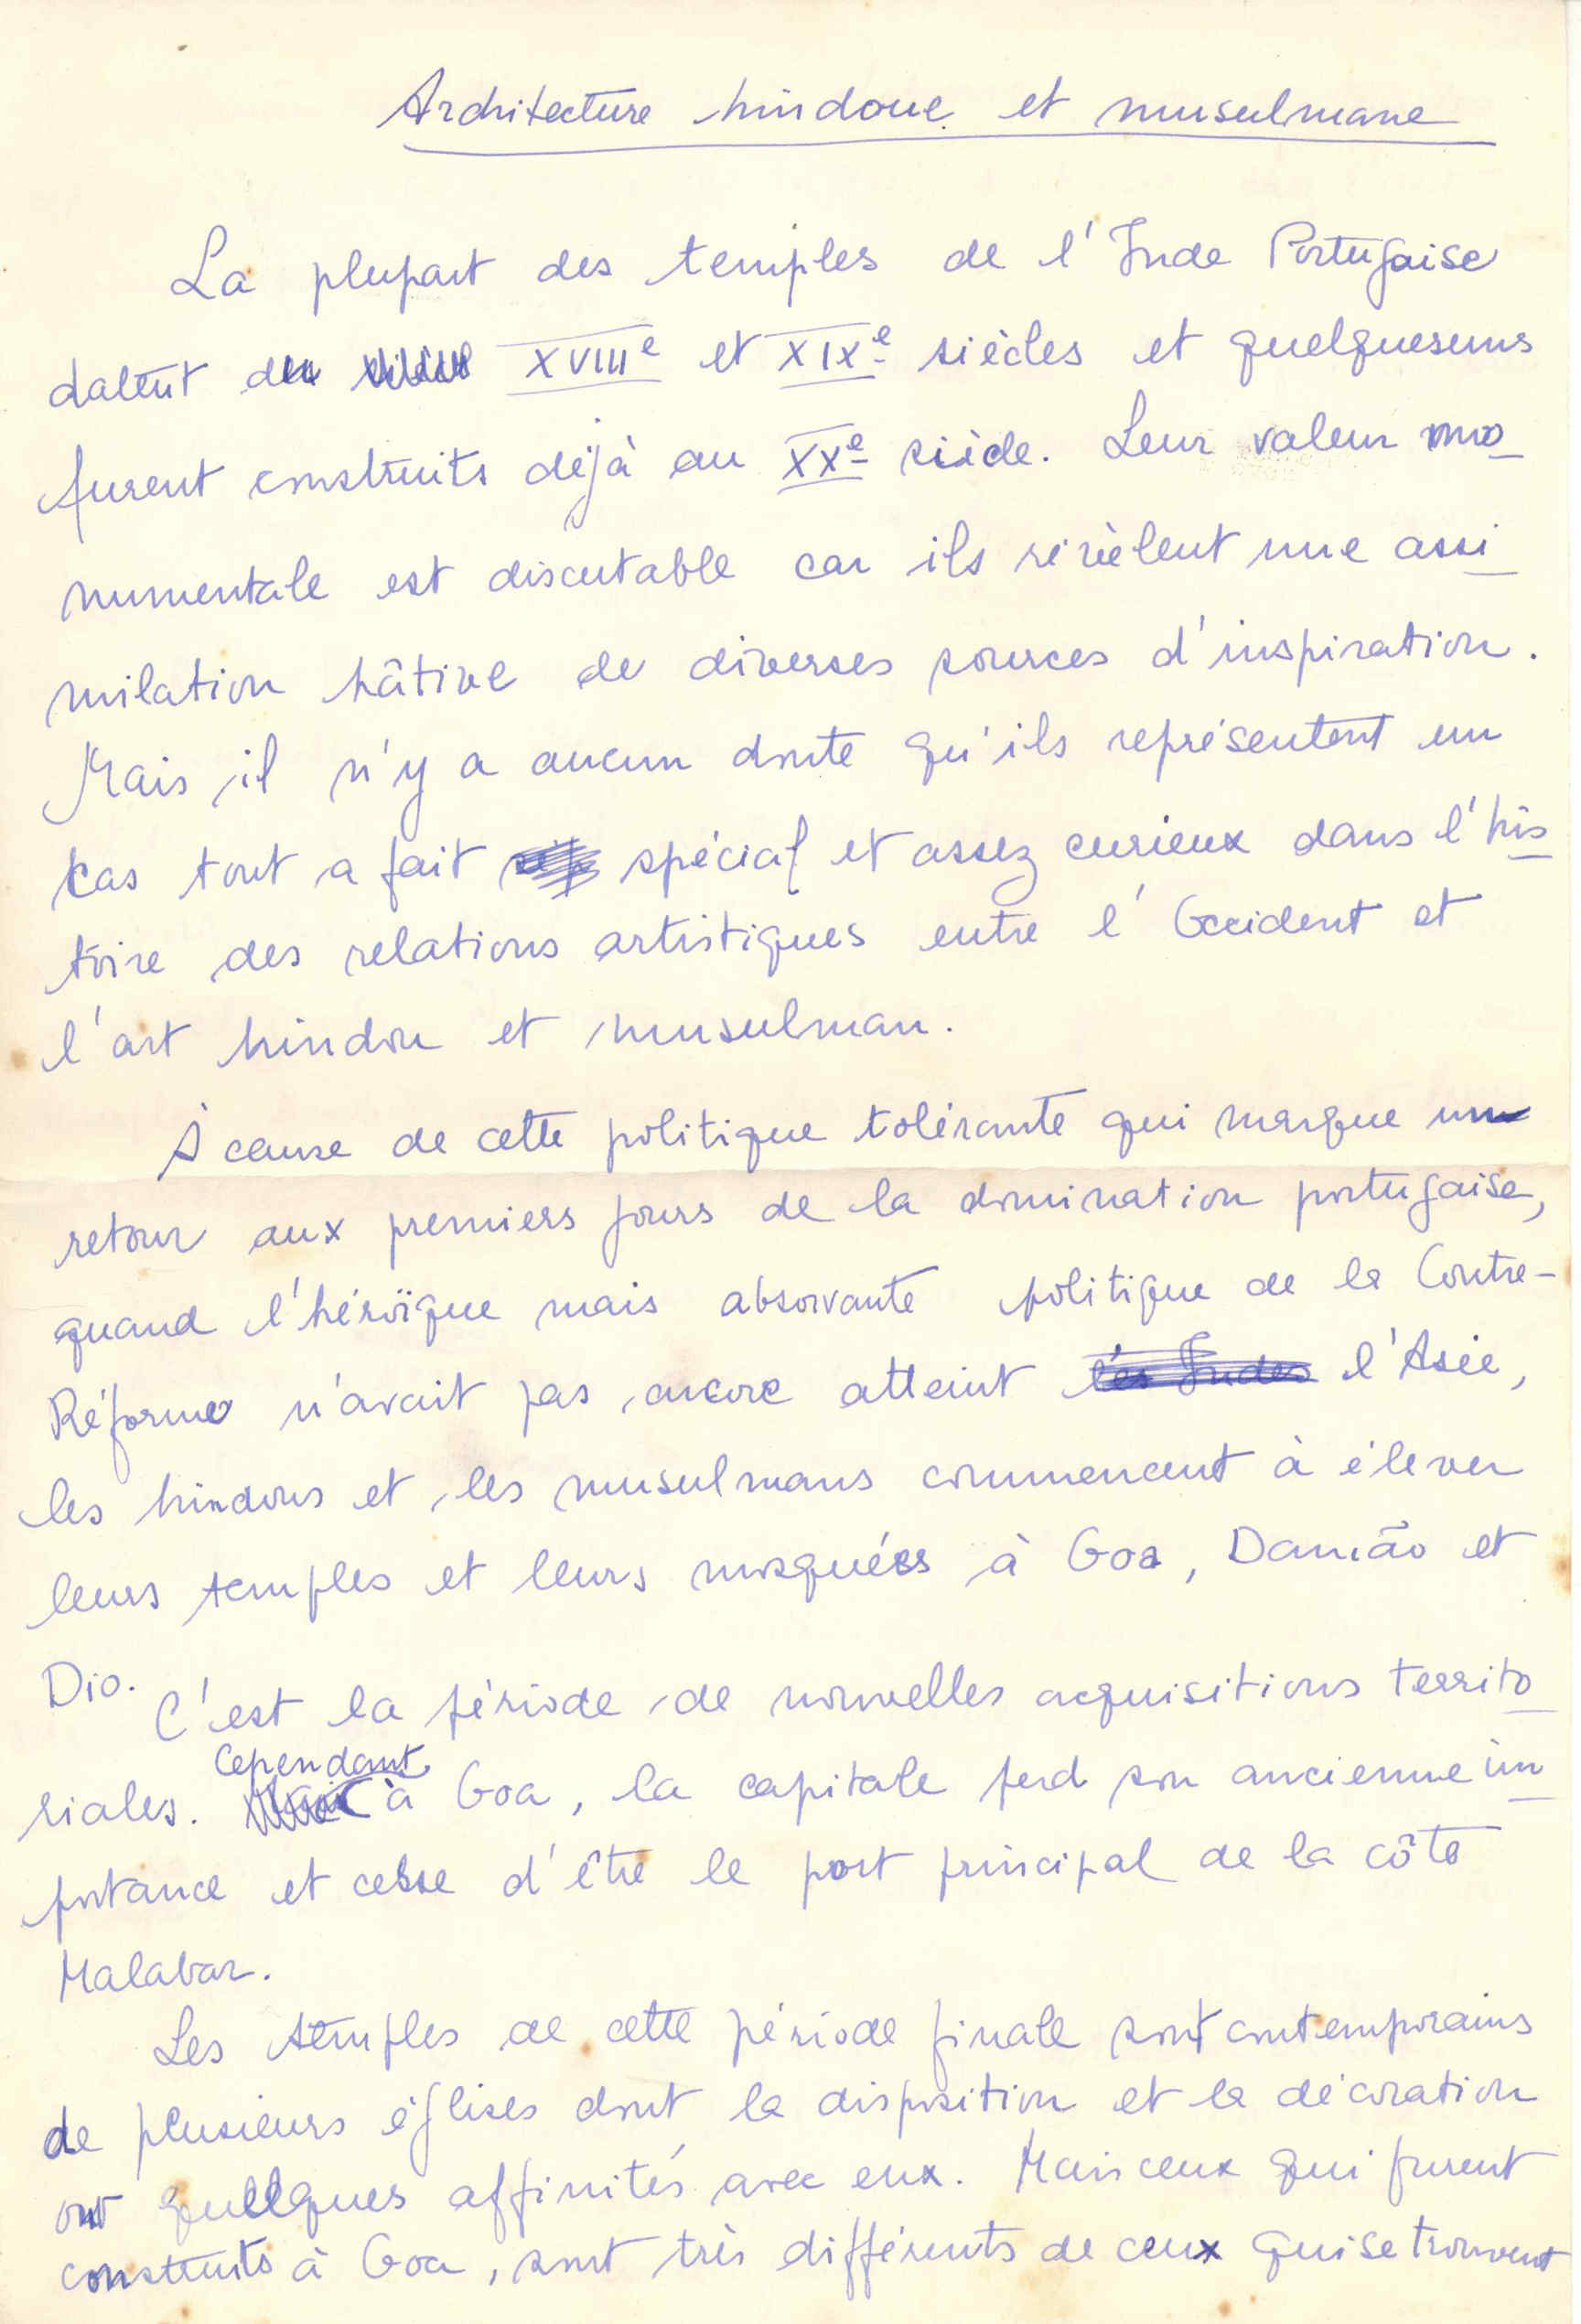 Architecture hindoue et musulmane
La plupart des temples de l'Inde Portugaise
datent du XVIIIe et XIXe siècles et quelquesuns
furent construits déjà au XXe siècle. Leur valeur mo
numentale est discutable car ils révèlent une assi
milation hâtive de diverses sources d'inspiration.
Mais il n'y a aucun doute qu'ils représentent un
cas tout a fait spécial et assez curieux dans l'his
toire des relations artistiques entre l'Occident et
l'art hindou et musulman.
À cause de cette politique tolérante qui marque un
retour aux premiers jours de la domination portugaise,
quand l'héroïque mais absorvante politique de la Contre-
Réforme n'avait pas encore atteint les Indes l'Asie,
les hindous et les musulmans commencent à élever
leurs temples et leurs mosquées à Goa, Damão et
Dio.
C'est la période de nouvelles acquisitions territo
riales. Cependant à Goa, la capitale perd son ancienne im
portance et cesse d'être le port principal de la côte
Malabar.
Les temples de cette période finale sont contemporains
de plusieurs églises dont la disposition et la décoration
ont quelques affinités avec eux. Mais ceux qui furent
construits à Goa, sont très différents de ceux qui se trouvent